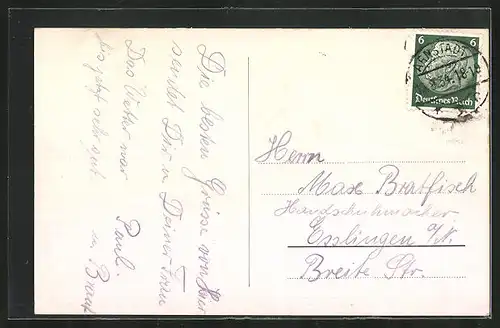 Die besten Grüsse von hier
sendet Dir u. Deiner Frau
Paul.
u. Braut
Das Wetter war
bis jetzt sehr gut
Herrn
Max Bratfisch
Handschuhmacher
Esslingen a/N.
Breite Str.
6 6
Deutsches Reich
ARNSTADT